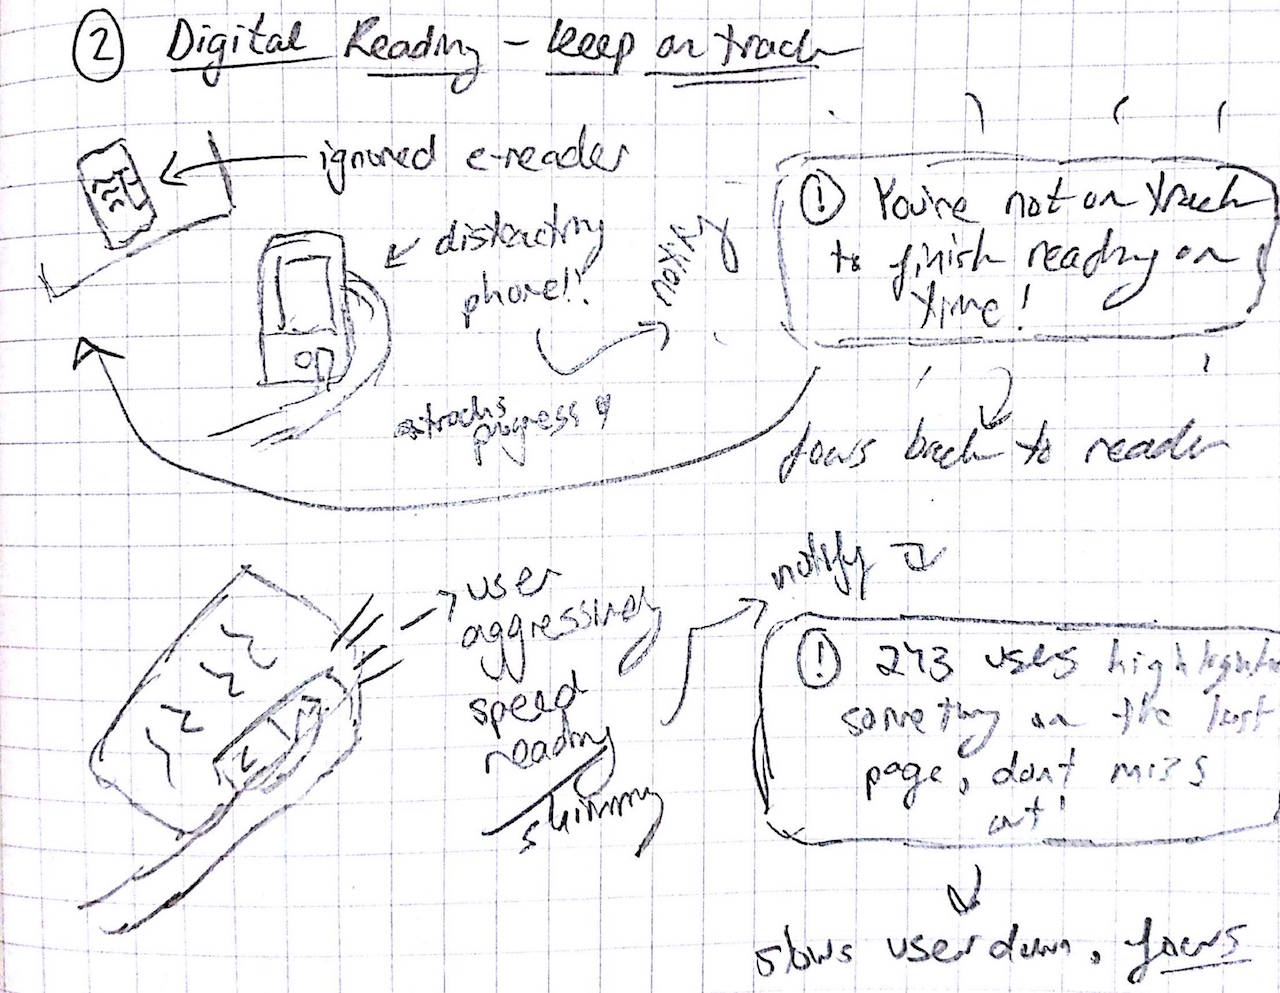 ② Digital Reading – keep on track
ignored e-reader
distracting
phone!!
notify
! You're not on track
to finish reading on
time!
tracks
progress
focus back to reader
user
aggressively
speed
reading
skimming
notify
! 243 users highlighted
something on the last
page, dont miss
out!
slows user down, focus